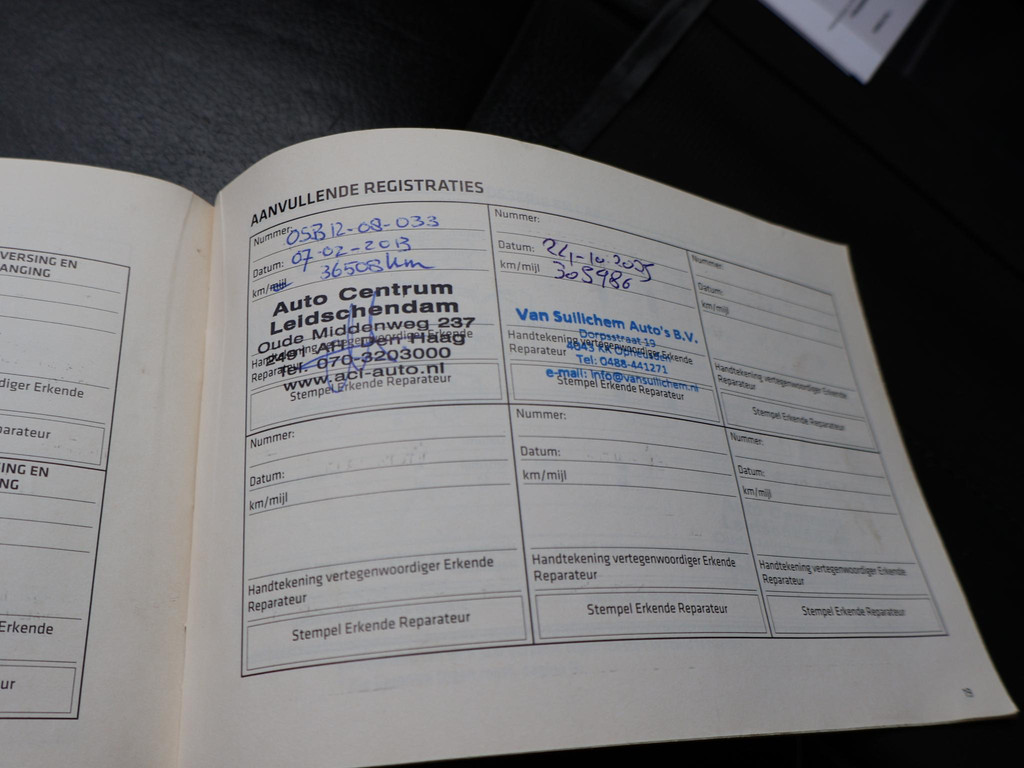 VERSING EN
ANGING
diger Erkende
parateur
ING EN
NG
Erkende
ur
AANVULLENDE REGISTRATIES
Nummer: OSB12-08-033
Datum: 07-02-2013
km/mijl 36508 km
Auto Centrum
Leidschendam
Oude Middenweg 237
2491 AH Den Haag
Tel. 070-3203000
www.acl-auto.nl
Handtekening vertegenwoordiger Erkende
Reparateur
Stempel Erkende Reparateur
Nummer:
Datum:
km/mijl 305986
Van Sullichem Auto's B.V.
Dorpsstraat 19
4043 KK Opheusden
Tel: 0488-441271
e-mail: info@vansullichem.nl
Handtekening vertegenwoordiger Erkende
Reparateur
Stempel Erkende Reparateur
Nummer:
Datum:
km/mijl
Handtekening vertegenwoordiger Erkende
Reparateur
Stempel Erkende Reparateur
Nummer:
Datum:
km/mijl
Handtekening vertegenwoordiger Erkende
Reparateur
Stempel Erkende Reparateur
Nummer:
Datum:
km/mijl
Handtekening vertegenwoordiger Erkende
Reparateur
Stempel Erkende Reparateur
Nummer:
Datum:
km/mijl
Handtekening vertegenwoordiger Erkende
Reparateur
Stempel Erkende Reparateur
19